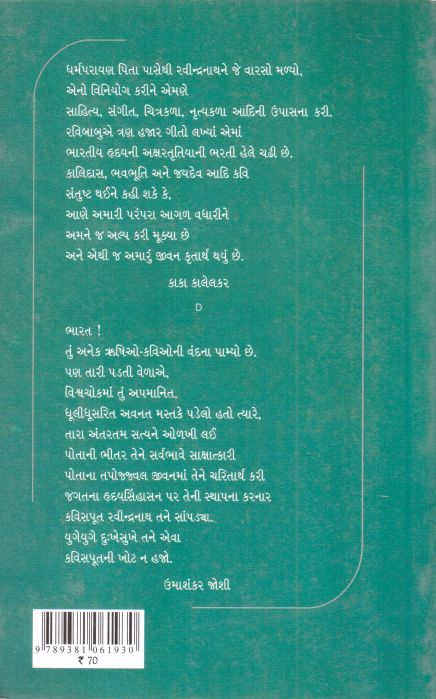 ધર્મપરાયણ પિતા પાસેથી રવીન્દ્રનાથને જે વારસો મળ્યો,
એનો વિનિયોગ કરીને એમણે
સાહિત્ય, સંગીત, ચિત્રકળા, નૃત્યકળા આદિની ઉપાસના કરી.
રવિબાબુએ ત્રણ હજાર ગીતો લખ્યાં એમાં
ભારતીય હૃદયની અક્ષરતૃતિયાની ભરતી હેલે ચઢી છે.
કાલિદાસ, ભવભૂતિ અને જયદેવ આદિ કવિ
સંતુષ્ટ થઈને કહી શકે કે,
આણે અમારી પરંપરા આગળ વધારીને
અમને જ અલ્પ કરી મૂક્યા છે
અને એથી જ અમારું જીવન કૃતાર્થ થયું છે.
કાકા કાલેલકર
D
ભારત !
તું અનેક ઋષિઓ-કવિઓની વંદના પામ્યો છે.
પણ તારી પડતી વેળાએ,
વિશ્વચોકમાં તું અપમાનિત,
ધૂલીધૂસરિત અવનત મસ્તકે પડેલો હતો ત્યારે,
તારા અંતરતમ સત્યને ઓળખી લઈ
પોતાની ભીતર તેને સર્વભાવે સાક્ષાત્કારી
પોતાના તપોજ્જ્વલ જીવનમાં તેને ચરિતાર્થ કરી
જગતના હૃદયસિંહાસન પર તેની સ્થાપના કરનાર
કવિસપૂત રવીન્દ્રનાથ તને સાંપડ્યા.
યુગેયુગે દુઃખેસુખે તને એવા
કવિસપૂતની ખોટ ન હજો.
ઉમાશંકર જોશી
9 789381 061930
₹ 70